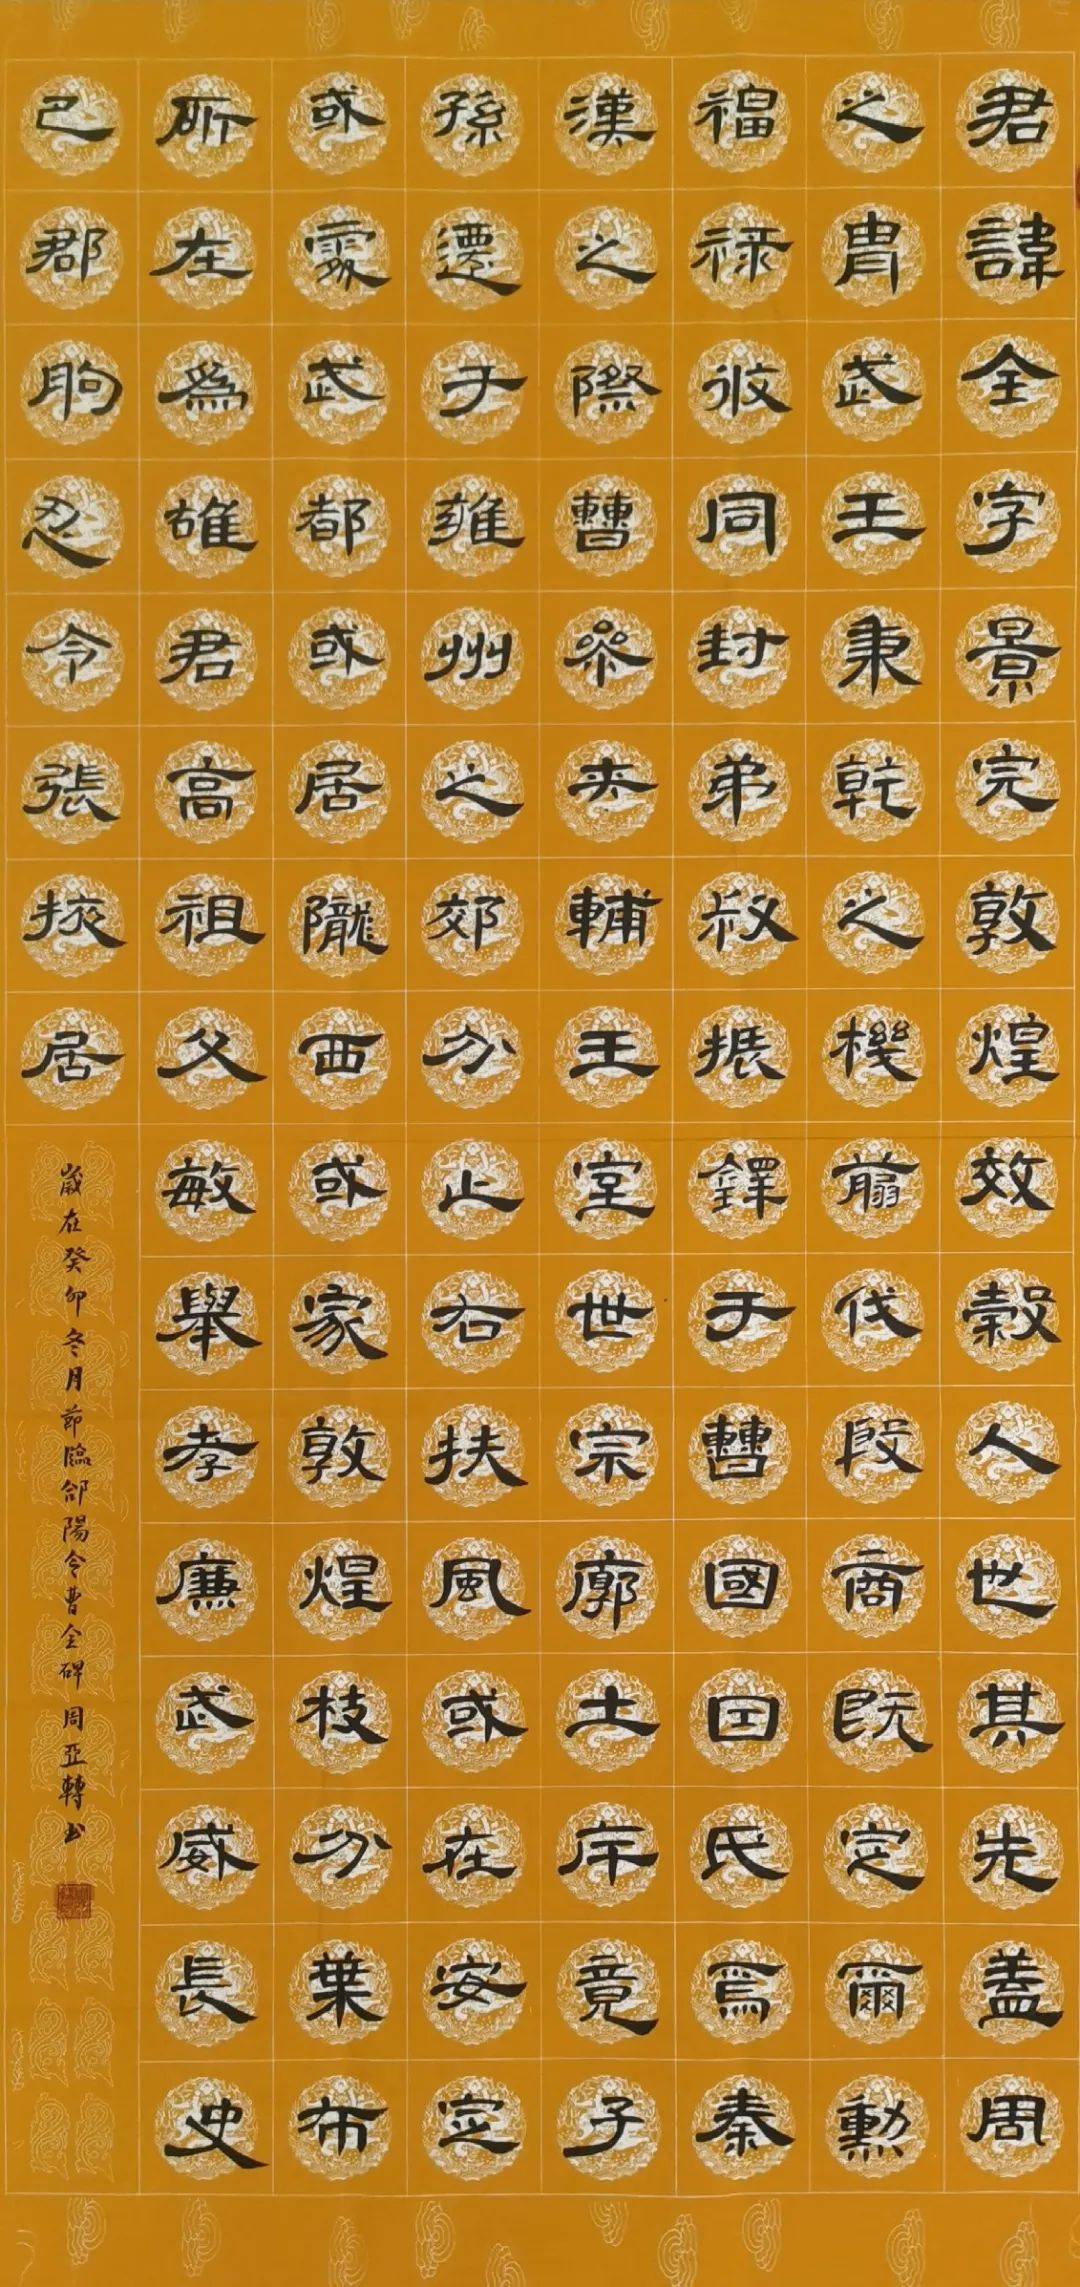 君諱全字景完敦煌效穀人也其先蓋周
之胄武王秉乾之機翦伐殷商既定爾勳
福祿攸同封弟叔振鐸于曹國因氏焉秦
漢之際曹參夾輔王室世宗廓土斥竟子
孫遷于雍州之郊分止右扶風或在安定
或處武都或居隴西或家敦煌枝分葉布
所在為雄君高祖父敏舉孝廉武威長史
巴郡朐忍令張掖居
歲在癸卯冬月節臨郃陽令曹全碑周亞轉書